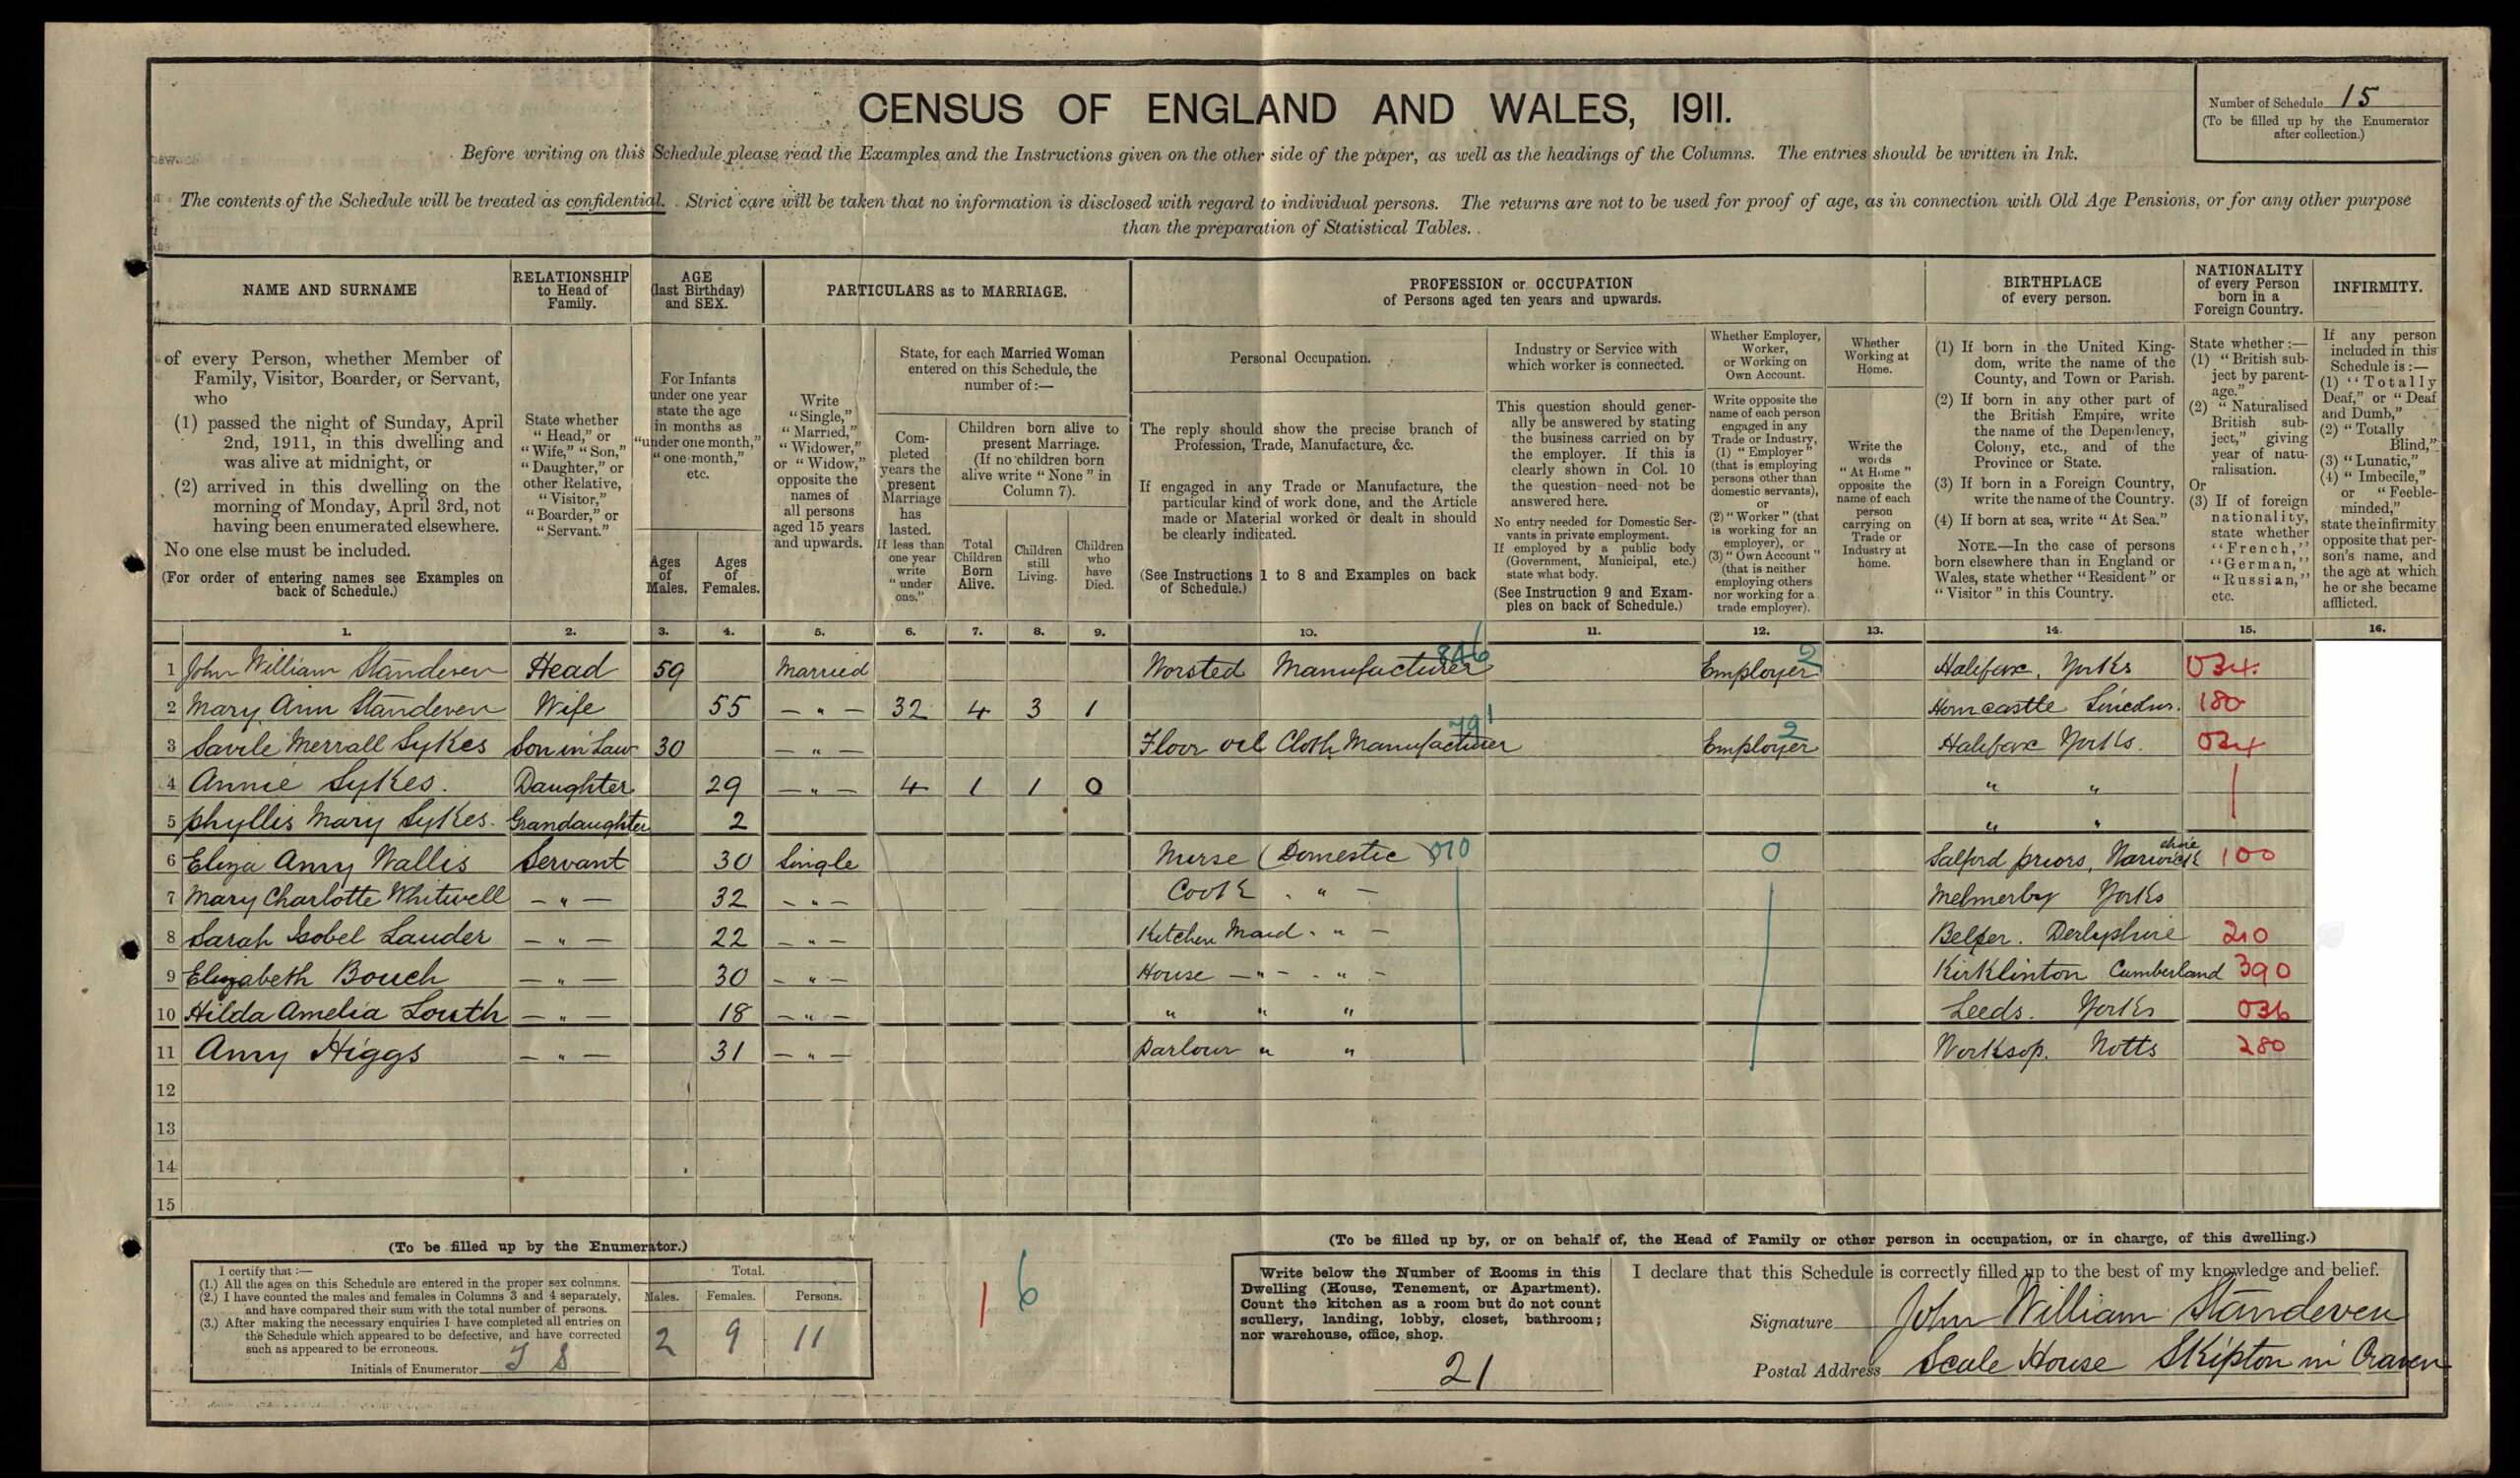 CENSUS OF ENGLAND AND WALES, 1911.
Number of Schedule 15
(To be filled up by the Enumerator
after collection.)
Before writing on this Schedule please read the Examples and the Instructions given on the other side of the paper, as well as the headings of the Columns. The entries should be written in Ink.
The contents of the Schedule will be treated as confidential. Strict care will be taken that no information is disclosed with regard to individual persons. The returns are not to be used for proof of age, as in connection with Old Age Pensions, or for any other purpose
than the preparation of Statistical Tables.
NAME AND SURNAME
of every Person, whether Member of
Family, Visitor, Boarder, or Servant,
who
(1) passed the night of Sunday, April
2nd, 1911, in this dwelling and
was alive at midnight, or
(2) arrived in this dwelling on the
morning of Monday, April 3rd, not
having been enumerated elsewhere.
No one else must be included.
(For order of entering names see Examples on
back of Schedule.)
RELATIONSHIP
to Head of
Family.
State whether
"Head," or
"Wife," "Son,"
"Daughter," or
other Relative,
"Visitor,"
"Boarder," or
"Servant."
AGE
(last Birthday)
and SEX.
For Infants
under one year
state the age
in months as
"under one month,"
"one month,"
etc.
Ages
of
Males.
Ages
of
Females.
PARTICULARS as to MARRIAGE.
Write
"Single,"
"Married,"
"Widower,"
or "Widow,"
opposite the
names of
all persons
aged 15 years
and upwards.
State, for each Married Woman
entered on this Schedule, the
number of:—
Com-
pleted
years the
present
Marriage
has
lasted.
If less than
one year
write
"under
one."
Children born alive to
present Marriage.
(If no children born
alive write "None" in
Column 7).
Total
Children
Born
Alive.
Children
still
Living.
Children
who
have
Died.
PROFESSION or OCCUPATION
of Persons aged ten years and upwards.
Personal Occupation.
The reply should show the precise branch of
Profession, Trade, Manufacture, &c.
If engaged in any Trade or Manufacture, the
particular kind of work done, and the Article
made or Material worked or dealt in should
be clearly indicated.
(See Instructions 1 to 8 and Examples on back
of Schedule.)
Industry or Service with
which worker is connected.
This question should gener-
ally be answered by stating
the business carried on by
the employer. If this is
clearly shown in Col. 10
the question need not be
answered here.
No entry needed for Domestic Ser-
vants in private employment.
If employed by a public body
(Government, Municipal, etc.)
state what body.
(See Instruction 9 and Exam-
ples on back of Schedule.)
Whether Employer,
Worker,
or Working on
Own Account.
Write opposite the
name of each person
engaged in any
Trade or Industry,
(1) "Employer"
(that is employing
persons other than
domestic servants),
or
(2) "Worker" (that
is working for an
employer), or
(3) "Own Account"
(that is neither
employing others
nor working for a
trade employer).
Whether
Working at
Home.
Write the
words
"At Home"
opposite the
name of each
person
carrying on
Trade or
Industry at
home.
BIRTHPLACE
of every person.
(1) If born in the United King-
dom, write the name of the
County, and Town or Parish.
(2) If born in any other part of
the British Empire, write
the name of the Dependency,
Colony, etc., and of the
Province or State.
(3) If born in a Foreign Country,
write the name of the Country.
(4) If born at sea, write "At Sea."
NOTE.—In the case of persons
born elsewhere than in England or
Wales, state whether "Resident" or
"Visitor" in this Country.
NATIONALITY
of every Person
born in a
Foreign Country.
State whether:—
(1) "British sub-
ject by parent-
age."
(2) "Naturalised
British sub-
ject," giving
year of natu-
ralisation.
Or
(3) If of foreign
nationality,
state whether
"French,"
"German,"
"Russian,"
etc.
INFIRMITY.
If any person
included in this
Schedule is:—
(1) "Totally
Deaf," or "Deaf
and Dumb,"
(2) "Totally
Blind,"
(3) "Lunatic,"
(4) "Imbecile,"
or "Feeble-
minded,"
state the infirmity
opposite that per-
son's name, and
the age at which
he or she became
afflicted.
1. 2. 3. 4. 5. 6. 7. 8. 9. 10. 11. 12. 13. 14. 15. 16.
1 John William Standeven Head 59 Married Worsted Manufacturer 846 Employer 2 Halifax, Yorks 034
2 Mary Ann Standeven Wife 55 — " — 32 4 3 1 Horncastle 180
3 Savile Merrall Sykes Son in Law 30 — " — Floor oil Cloth Manufacturer 791 Employer 2 Halifax Yorks. 034
4 Annie Sykes. Daughter 29 — " — 4 1 1 0 " "
5 Phyllis Mary Sykes. Grandaughter 2 " "
6 Eliza Amy Wallis Servant 30 Single Nurse (Domestic) 010 0 Salford priors, Warwickshire 100
7 Mary Charlotte Whitwell — " — 32 — " — Cook " — Melmerby Yorks
8 Sarah Isobel Lauder — " — 22 — " — Kitchen Maid " — Belper. Derbyshire 210
9 Elizabeth Bouch — " — 30 — " — House — " — " — Kirklinton Cumberland 390
10 Hilda Amelia South — " — 18 — " — " " " Leeds. Yorks 036
11 Amy Higgs — " — 31 — " — Parlour " " Worksop. Notts 280
12
13
14
15
(To be filled up by the Enumerator.)
I certify that:—
(1.) All the ages on this Schedule are entered in the proper sex columns.
(2.) I have counted the males and females in Columns 3 and 4 separately,
and have compared their sum with the total number of persons.
(3.) After making the necessary enquiries I have completed all entries on
the Schedule which appeared to be defective, and have corrected
such as appeared to be erroneous.
Initials of Enumerator
Total.
Males. Females. Persons.
2 9 11
1 6
(To be filled up by, or on behalf of, the Head of Family or other person in occupation, or in charge, of this dwelling.)
Write below the Number of Rooms in this
Dwelling (House, Tenement, or Apartment).
Count the kitchen as a room but do not count
scullery, landing, lobby, closet, bathroom;
nor warehouse, office, shop.
21
I declare that this Schedule is correctly filled up to the best of my knowledge and belief.
Signature John William Standeven
Postal Address Scale House Skipton in Craven